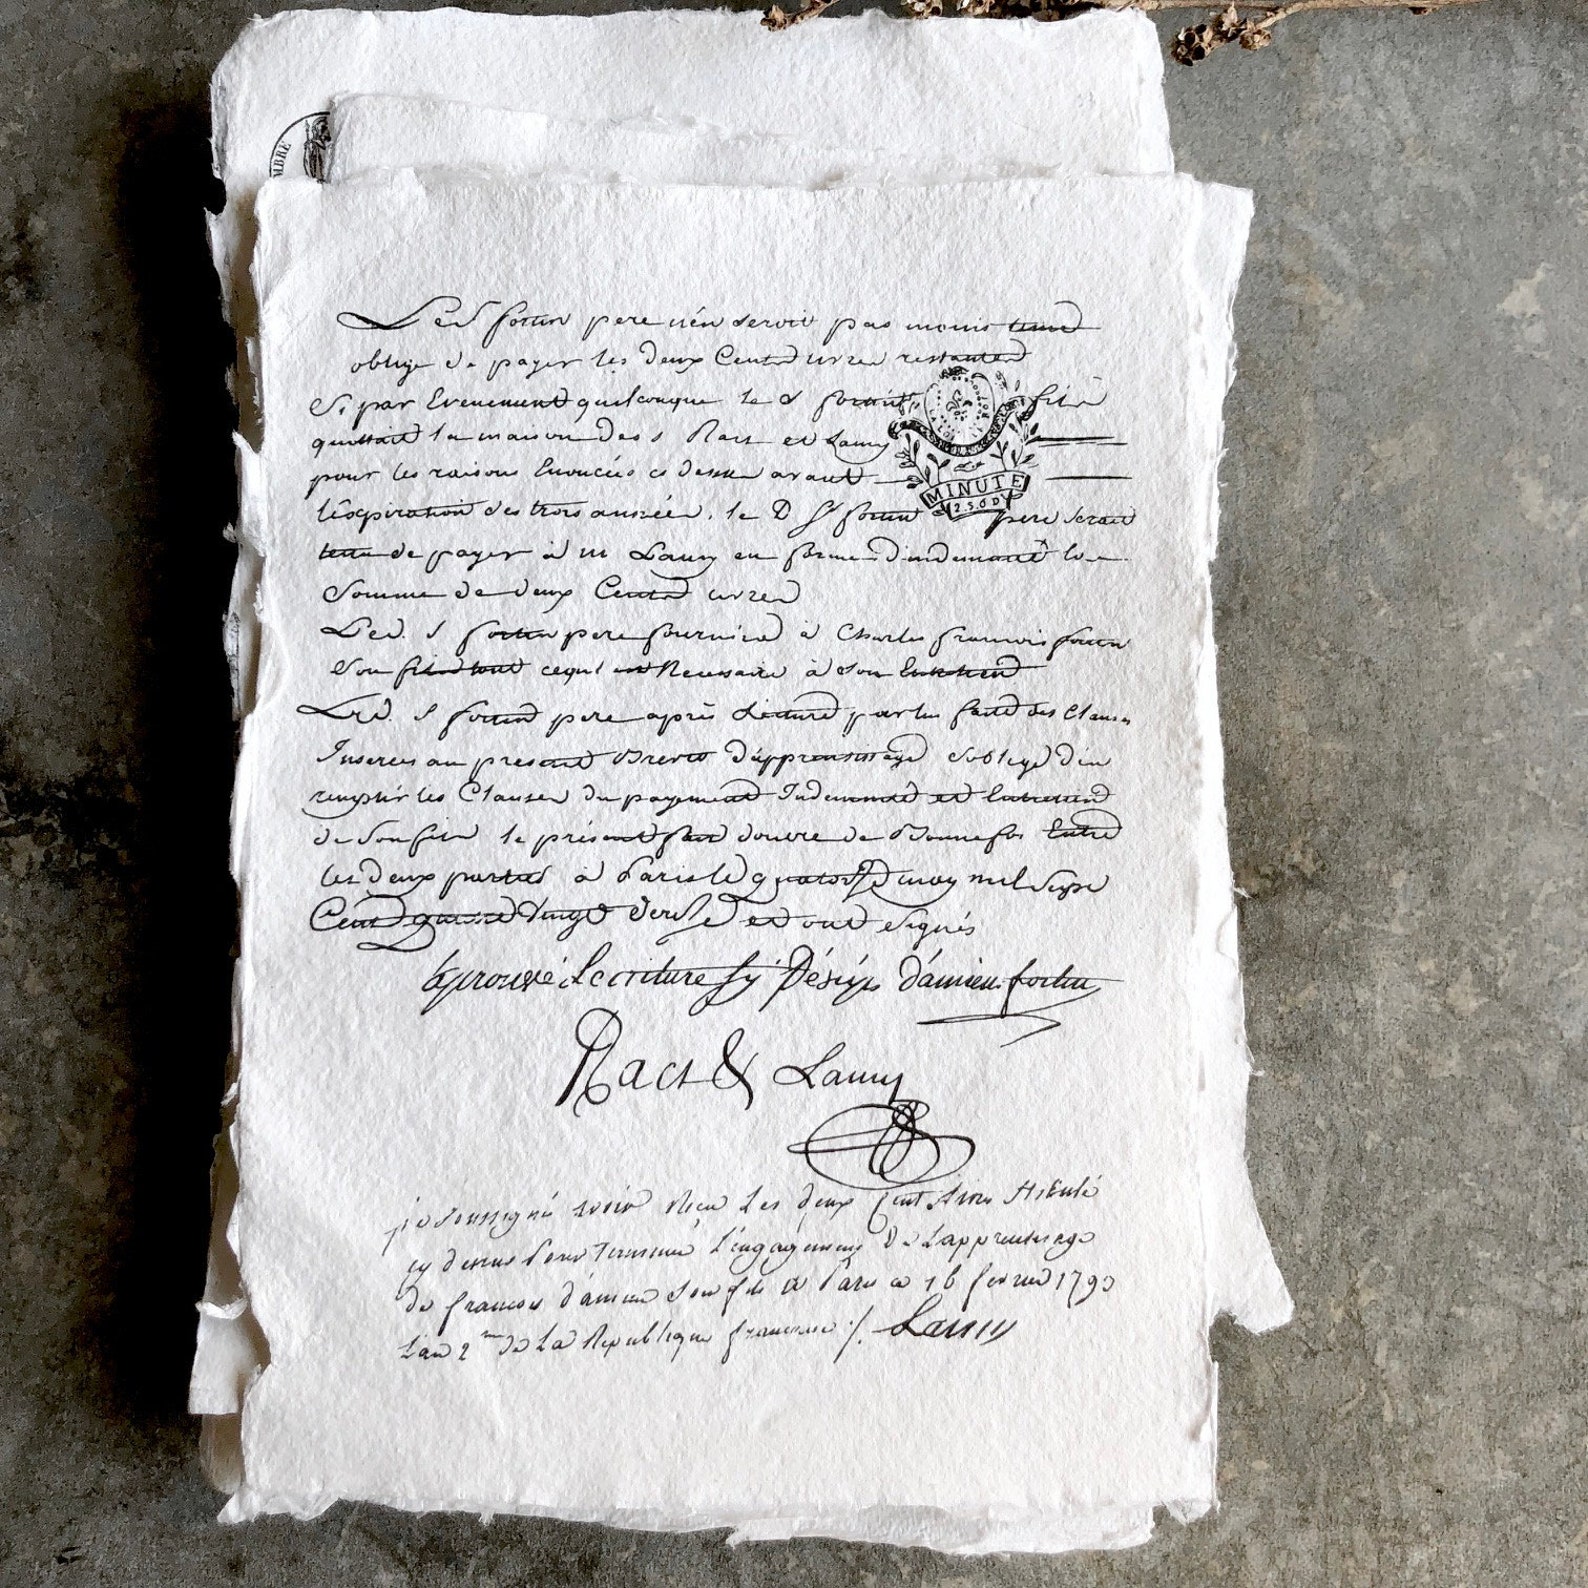 MBRE
Led fortin pere n'en seroit pas moins tenu
oblige de payer les deux Cents livres restantes
Si par Evenement quelconque le S fortin fils
quittait la maison des s Ract et Lamy
pour les raisons Enoncées cy dessus avant
LA LOI LE ROI
MINUTE
2.S.6.D
l'expiration des trois années, le D S fortin pere serait
tenu de payer à m Lamy en forme d'indemnité la
Somme de deux Cents livres
Led. S fortin pere fournira à Charles francois fortin
Son fils tout ce qui est Necessaire à son Entretien
Led. S fortin pere après Lecture par lui faite des Clauses
Inserées au present Brevet d'apprentissage s'oblige d'en
remplir les Clauses du payement Indemnité et Entretien
de Son fils le présent fait double de Bonne foi Entre
les deux parties à Paris le quatorze may mil Sept
Cent quatre Vingt onze et ont Signés
Aprouvé L'ecriture Cy Désus d'amien fortin
Ract & Lamy
je soussigné avoir Recu Les deux Cent Livres Stipulé
cy dessus Pour Terminer L'engagement De L'apprentisage
de francois d'amien Son fils a Paris ce 16 fevrier 1793
L'an 2me de La Republique francaise /. Lamy